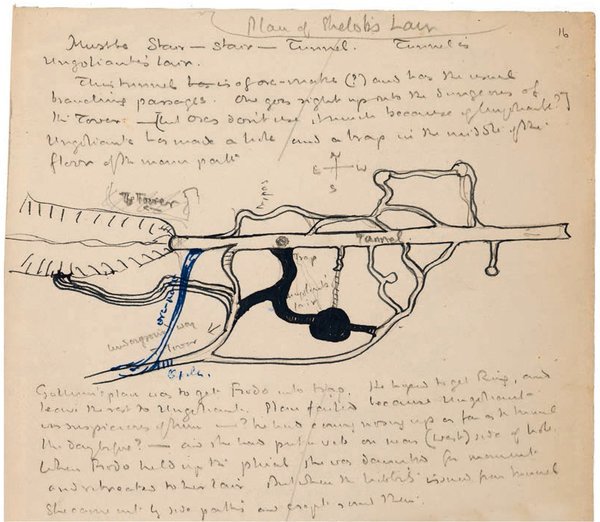 Plan of Shelob's Lair
16
Must be Stair — stair — Tunnel. Tunnel is
Ungoliant's lair.
This tunnel is of orc-make (?) and has the usual
branching passages. One goes right up into the dungeons of
the Tower — [but orcs don't use it much because of Ungoliant?]
Ungoliant has made a hole and a trap in the middle of the
floor of the main path
N
E W
S
To Tower
Tunnel
Trap
Ungoliant's
lair
orc path
Underground way
Tower
Gollum's plan was to get Frodo into trap. He hoped to get Ring, and
leave the rest to Ungoliant. Plan failed because Ungoliant
was suspicious of him — ? he had coming nosing up as far as tunnel
the day before? — and she had put a web on near (west) side of hole.
When Frodo held up the phial she was daunted for moment
and retreated to her lair. But when the hobbits issued from tunnel
she came out by side paths and crept round them.